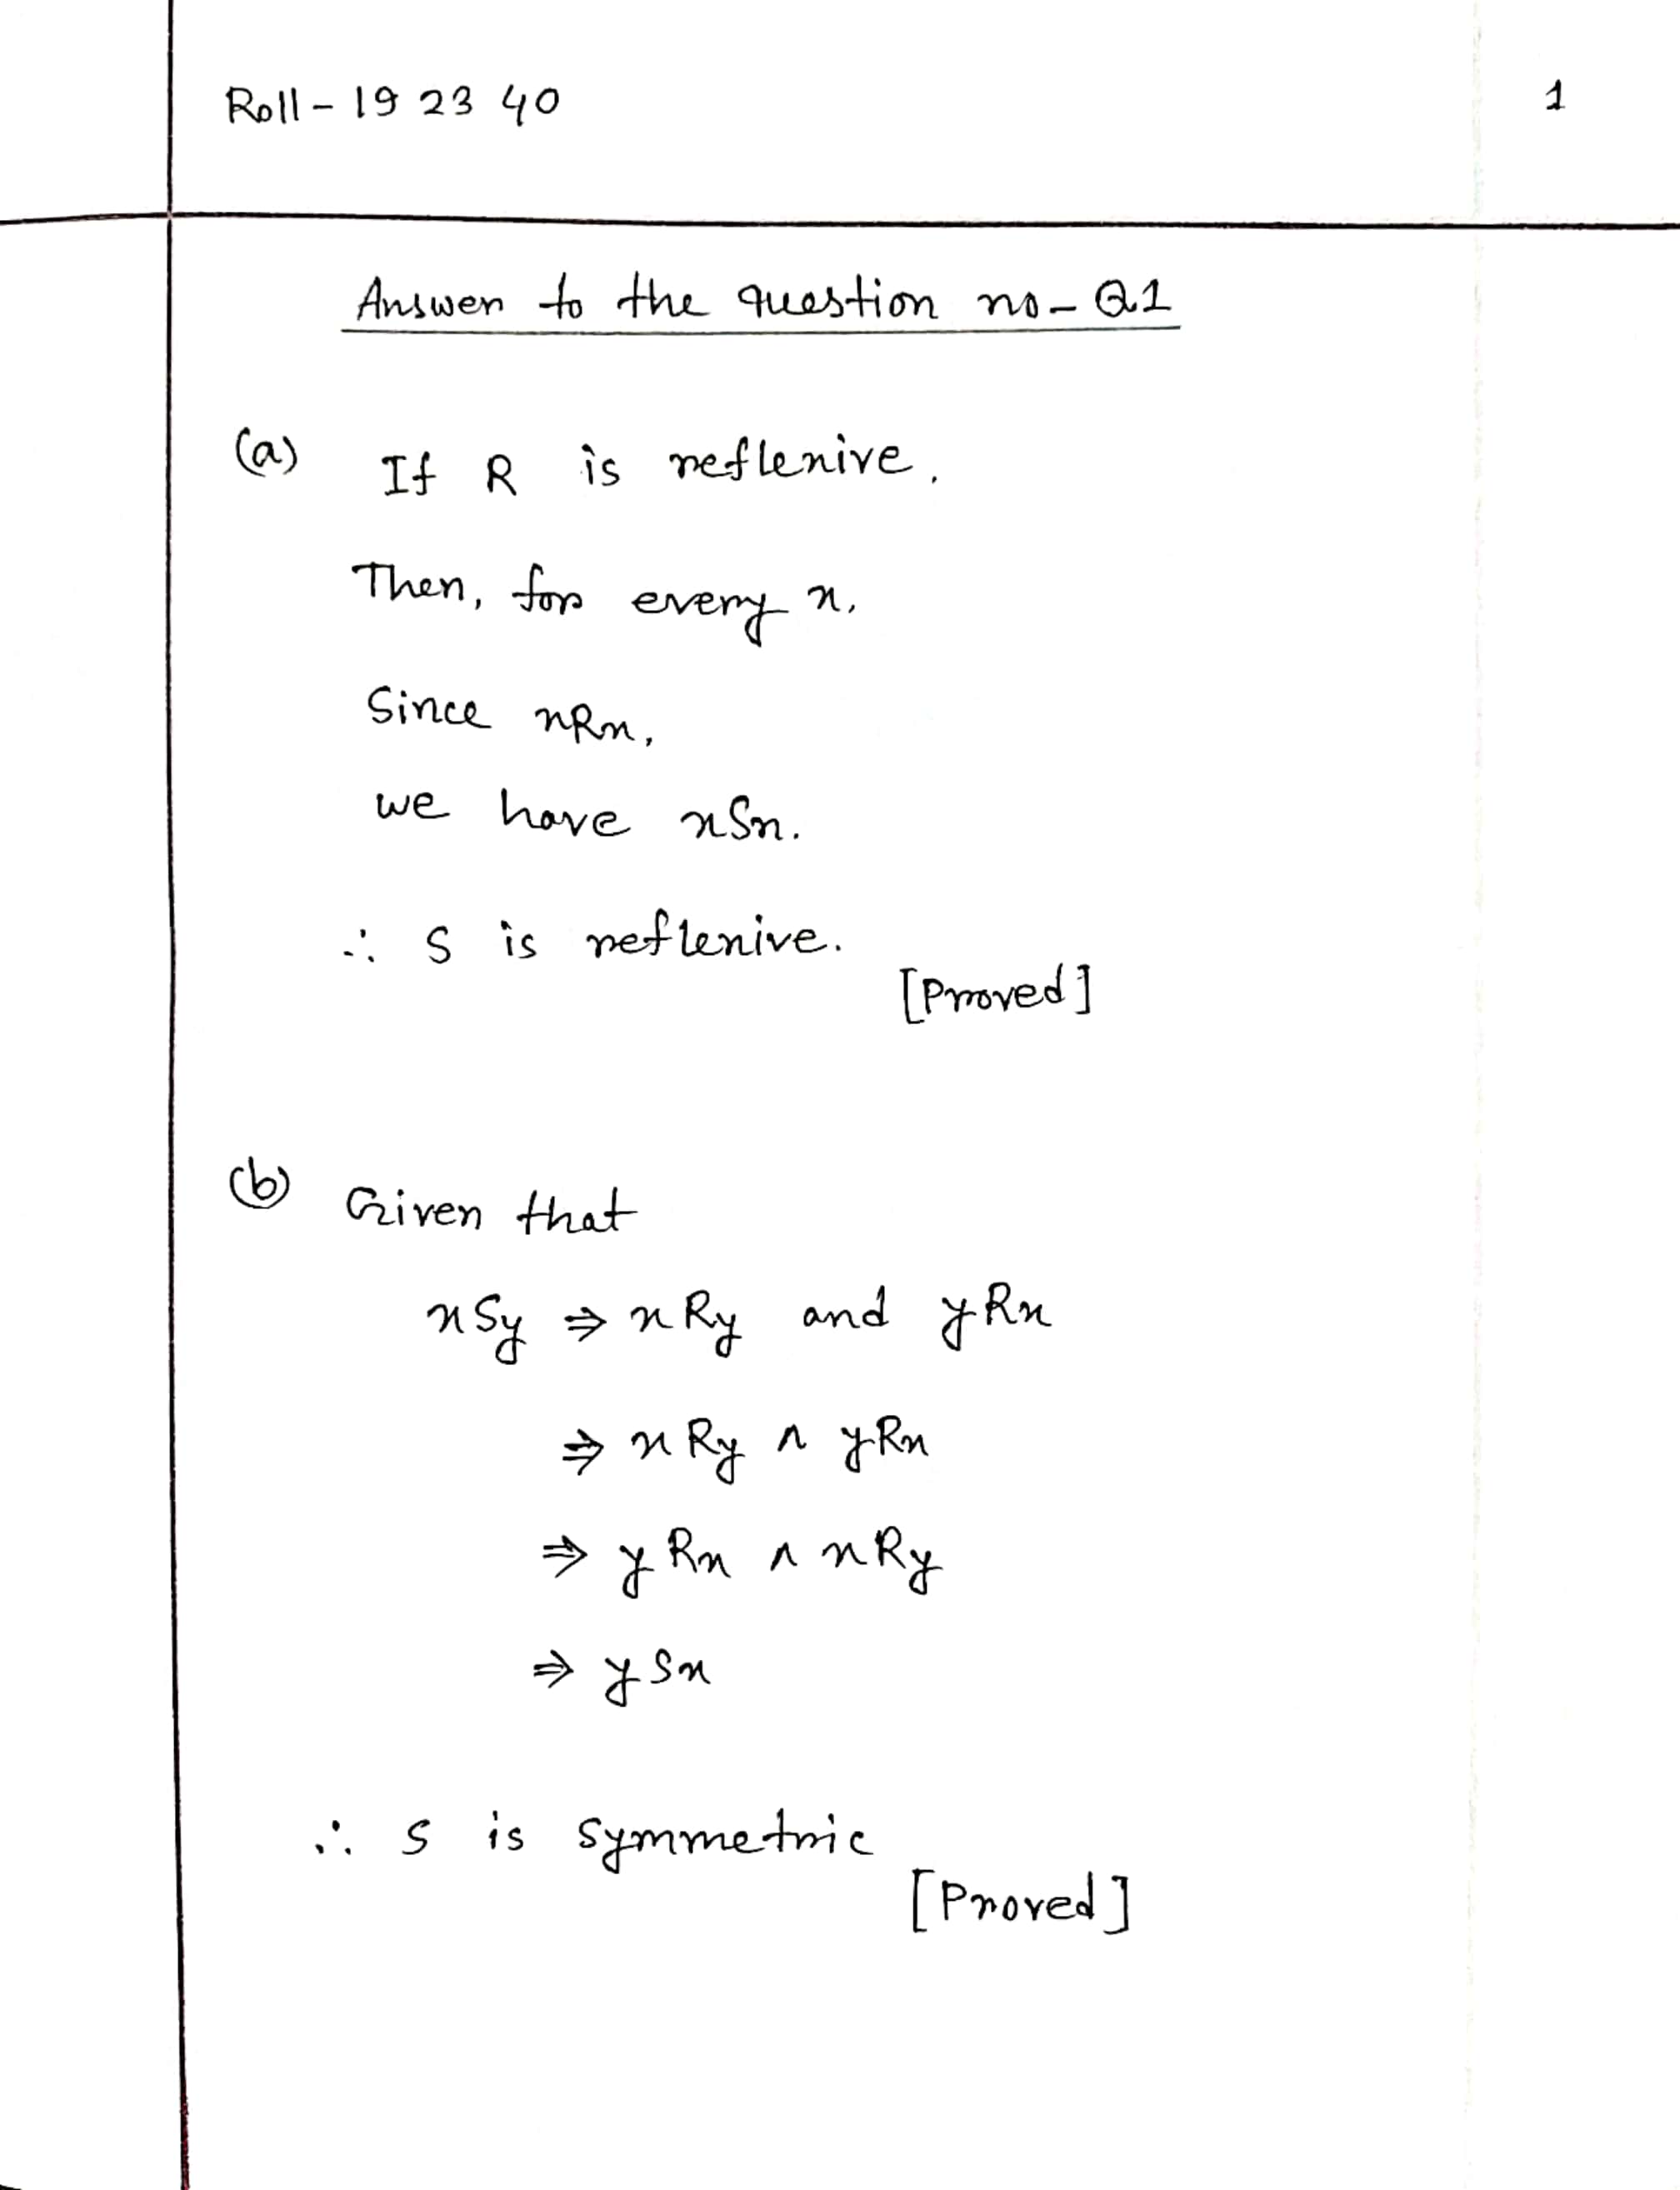 Roll - 19 23 40
1
Answer to the question no - Q1
(a) If R is reflexive.
Then, for every x,
Since xRx,
we have xSx.
∴ S is reflexive.
[Proved]
(b) Given that
xSy ⇒ xRy and yRx
⇒ xRy ∧ yRx
⇒ yRx ∧ xRy
⇒ ySx
∴ S is symmetric
[Proved]